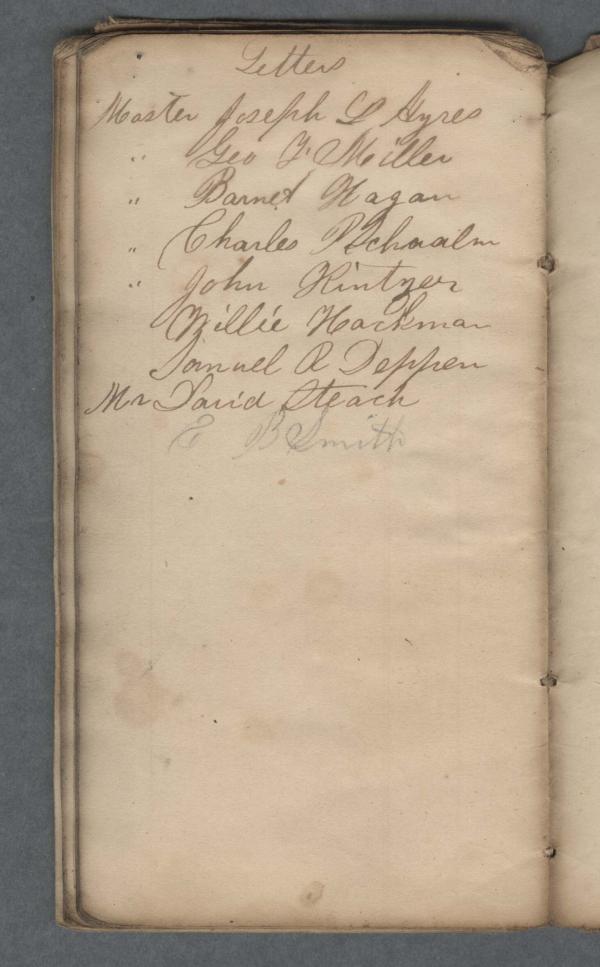 Letters
Master Joseph L Ayres
" Geo F Miller
" Barnet Hagan
" Charles
" John Kintzer
Willie Hackman
Samuel R Deppen
Mr David Steach
E B Smith